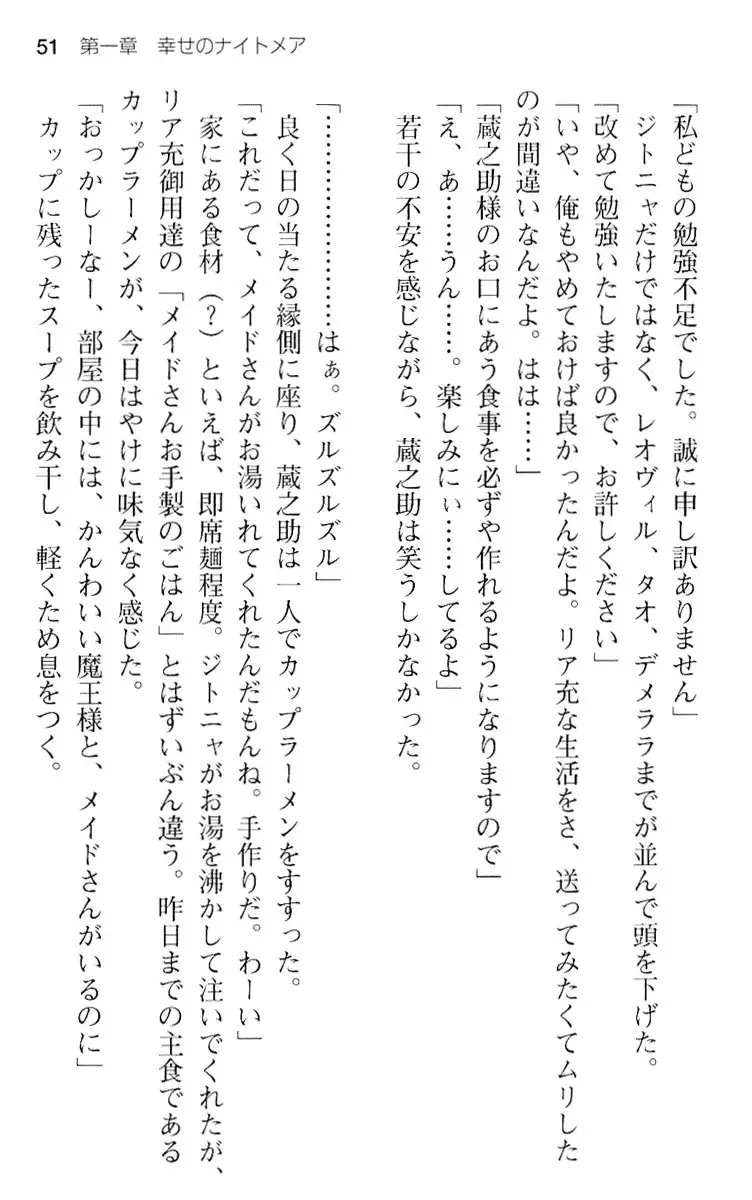 51 第一章 幸せのナイトメア
「私どもの勉強不足でした。誠に申し訳ありません」
ジトニャだけではなく、レオヴィル、タオ、デメララまでが並んで頭を下げた。
「改めて勉強いたしますので、お許しください」
「いや、俺もやめておけば良かったんだよ。リア充な生活をさ、送ってみたくてムリした
のが間違いなんだよ。はは……」
「蔵之助様のお口にあう食事を必ずや作れるようになりますので」
「え、あ……うん……。楽しみにぃ……してるよ」
若干の不安を感じながら、蔵之助は笑うしかなかった。
「……………………はぁ。ズルズルズル」
良く日の当たる縁側に座り、蔵之助は一人でカップラーメンをすすった。
「これだって、メイドさんがお湯いれてくれたんだもんね。手作りだ。わーい」
家にある食材（？）といえば、即席麺程度。ジトニャがお湯を沸かして注いでくれたが、
リア充御用達の「メイドさんお手製のごはん」とはずいぶん違う。昨日までの主食である
カップラーメンが、今日はやけに味気なく感じた。
「おっかしーなー、部屋の中には、かんわいい魔王様と、メイドさんがいるのに」
カップに残ったスープを飲み干し、軽くため息をつく。